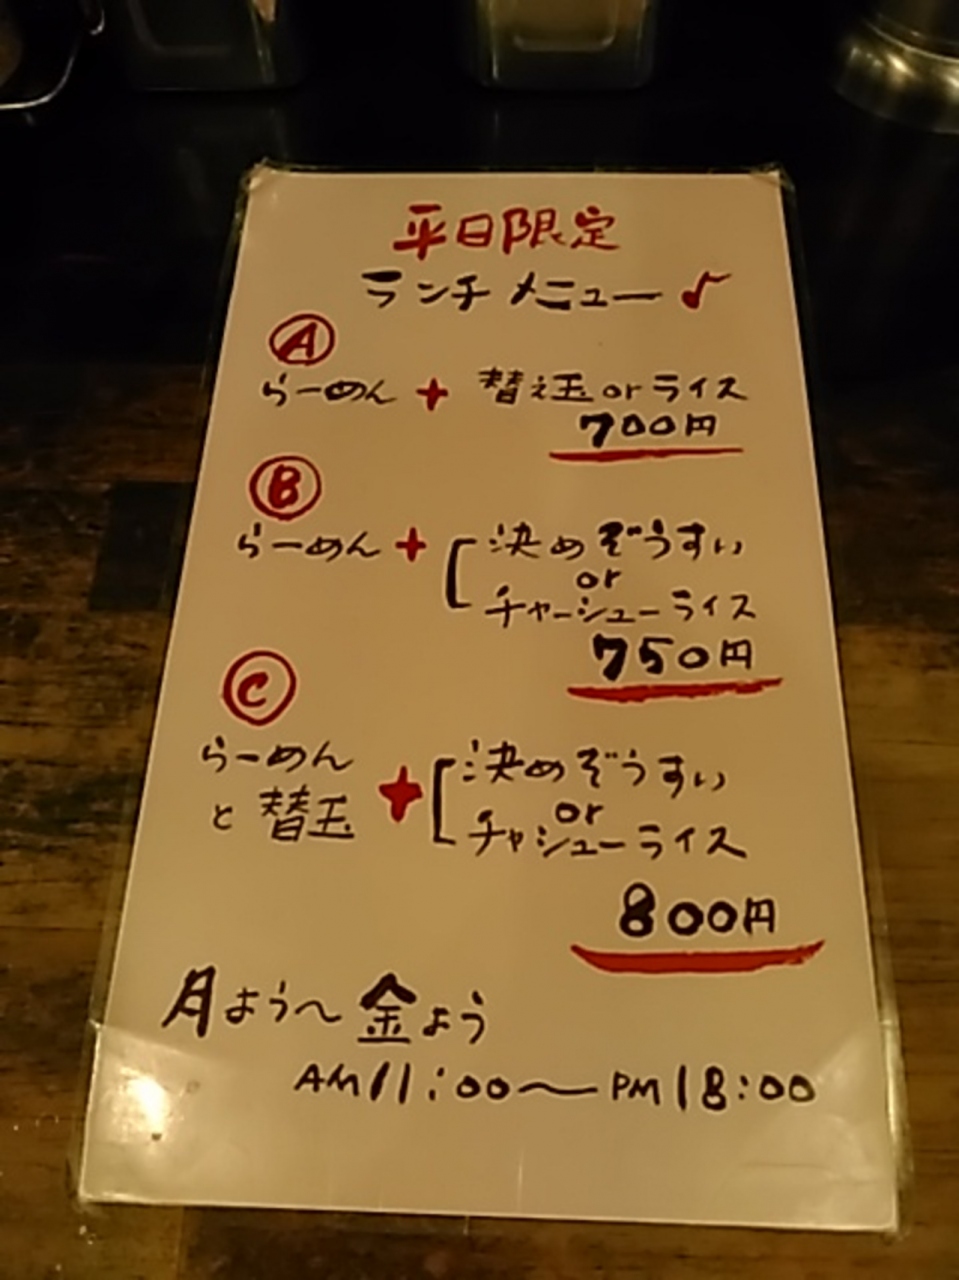 平日限定
ランチメニュー♪
Ⓐ
らーめん + 替え玉 or ライス
700円
Ⓑ
らーめん + 決めぞうすい
or
チャーシューライス
750円
Ⓒ
らーめん
と替玉 + 決めぞうすい
or
チャシューライス
800円
月よう〜金よう
AM11:00〜PM18:00